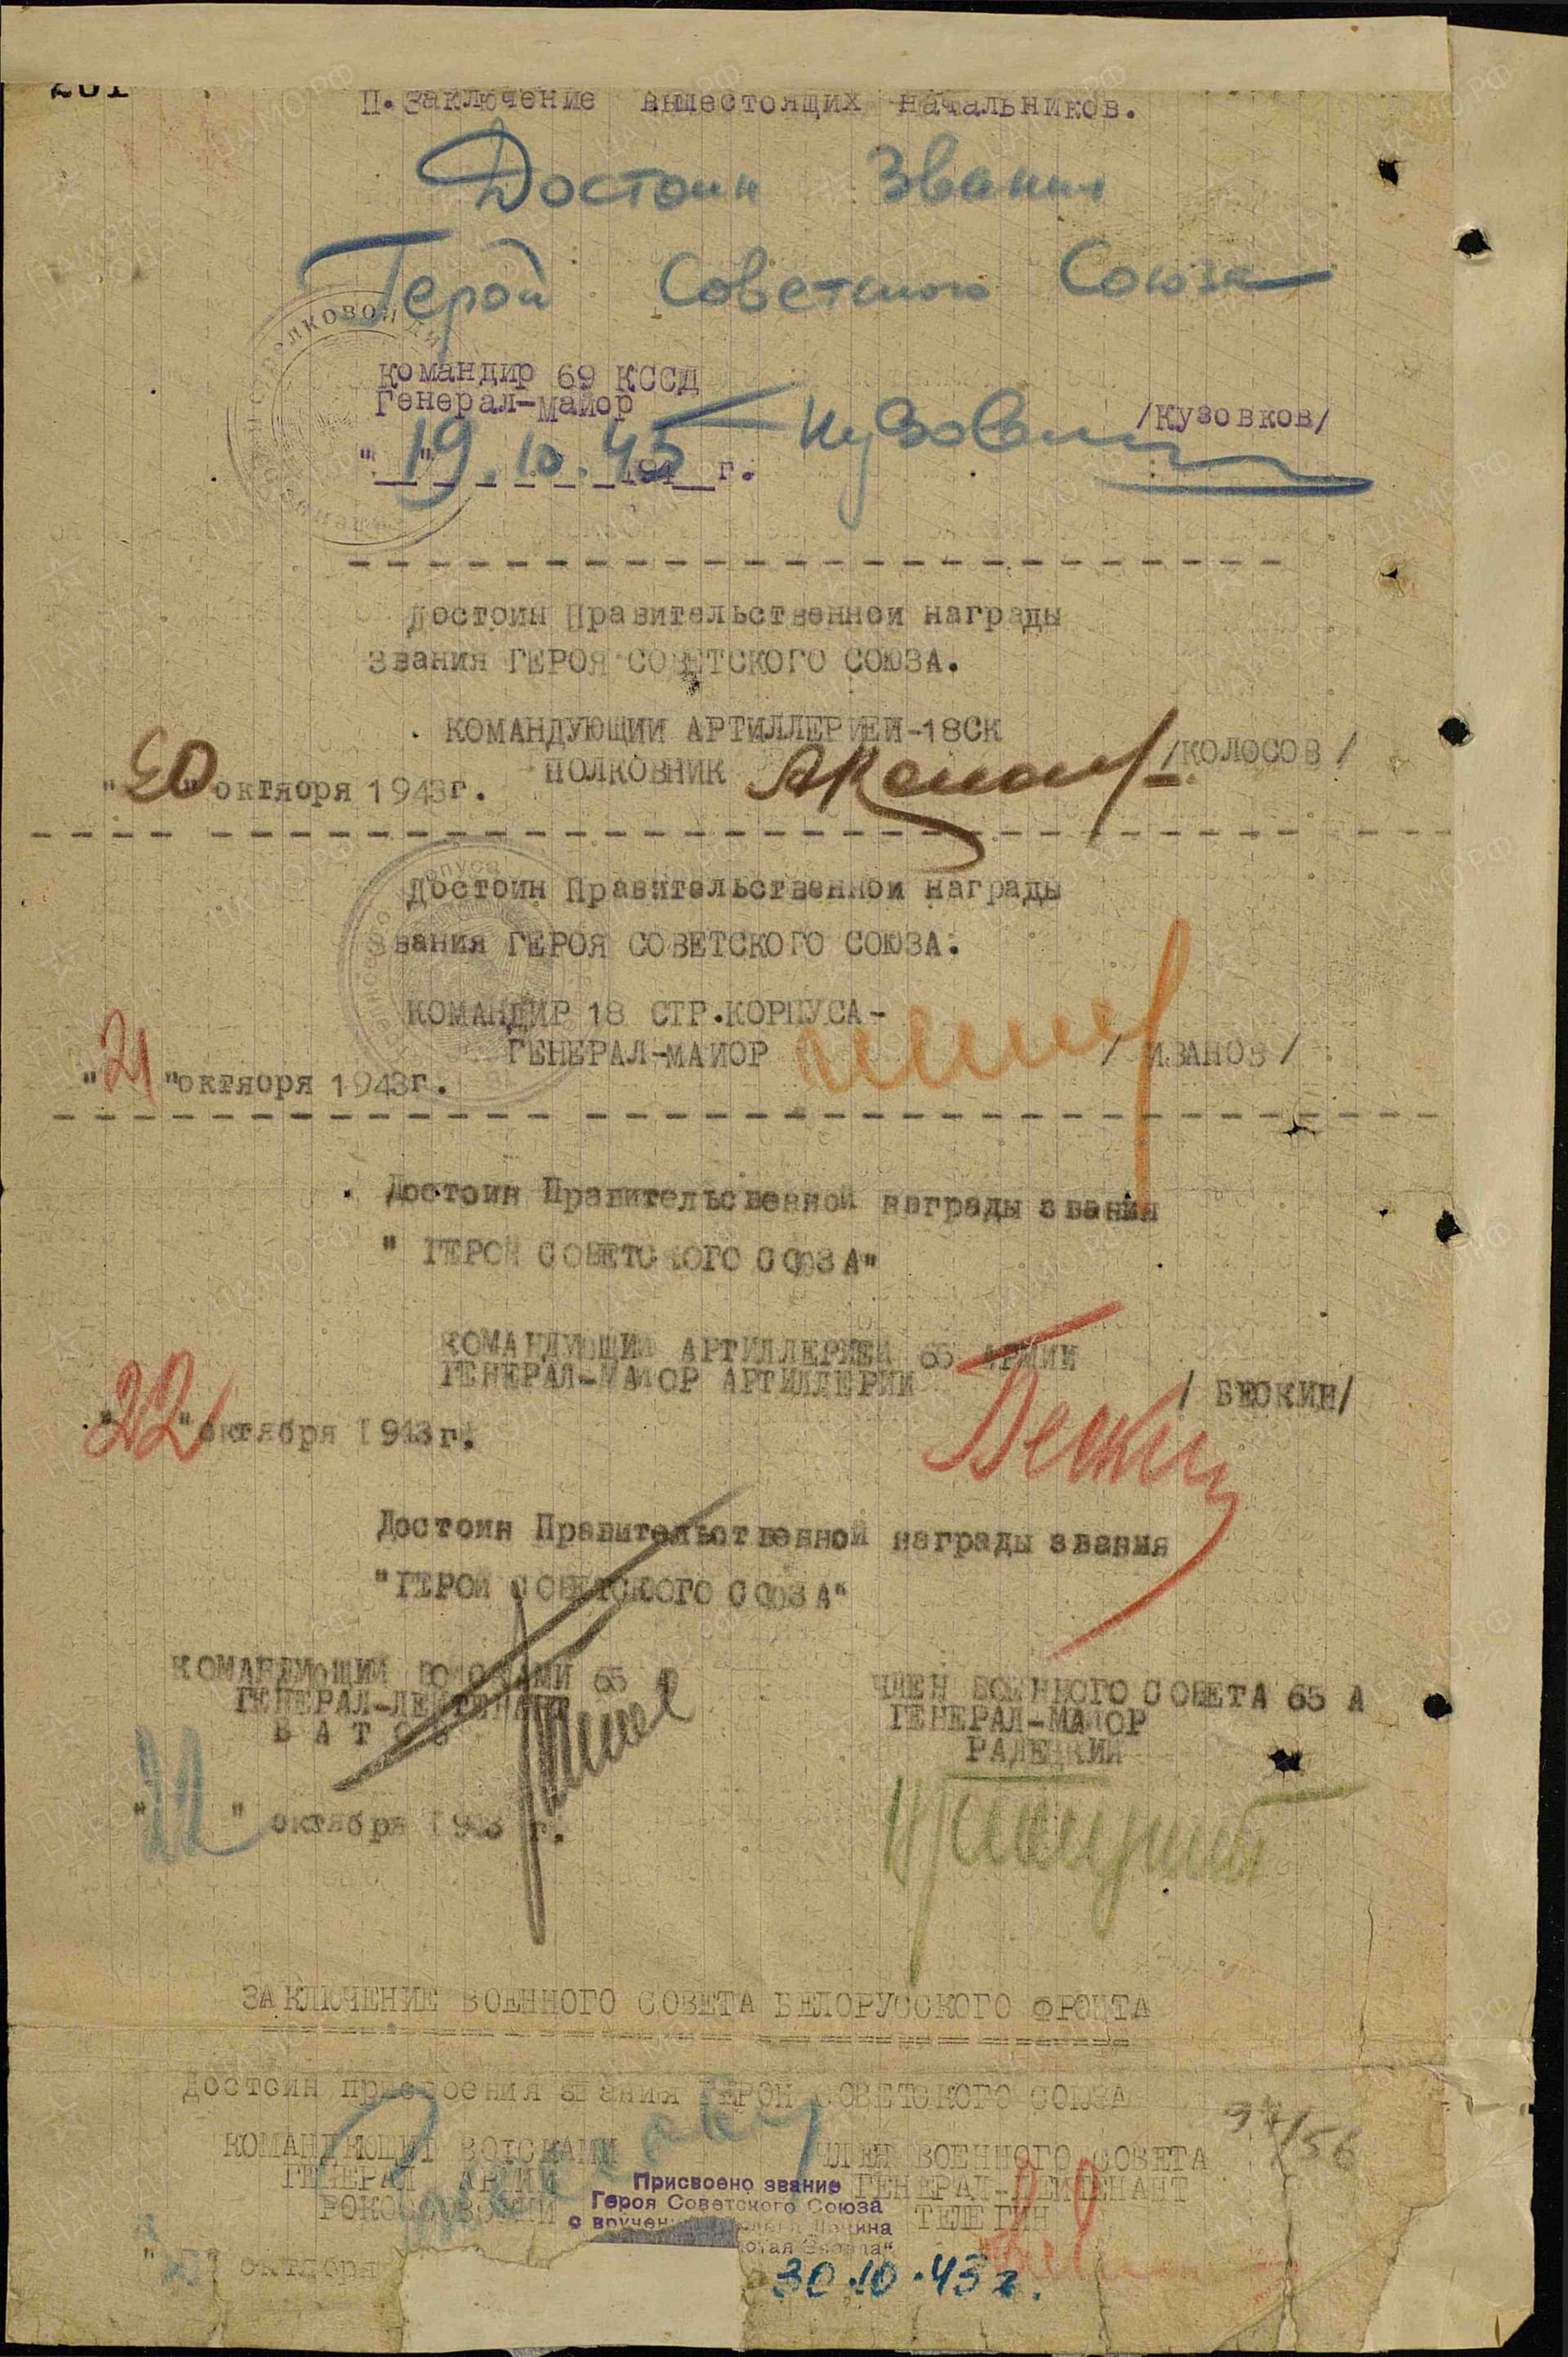 П. Заключение вышестоящих начальников.
Достоин звания
Герой Советского Союза
Командир 69 КССД
Генерал-майор
/Кузовков/
"19.10.43 г.
Достоин Правительственной награды
звания ГЕРОЯ СОВЕТСКОГО СОЮЗА.
КОМАНДУЮЩИЙ АРТИЛЛЕРИЕЙ-18СК
ПОЛКОВНИК /КОЛОСОВ/
"20" октября 1943г.
Достоин Правительственной награды
звания ГЕРОЯ СОВЕТСКОГО СОЮЗА.
КОМАНДИР 18 СТР.КОРПУСА-
ГЕНЕРАЛ-МАЙОР / ИВАНОВ/
"21" октября 1943г.
Достоин Правительсвенной награды звания
" ГЕРОЙ СОВЕТСКОГО СОЮЗА"
КОМАНДУЮЩИЙ АРТИЛЛЕРИЕЙ 65 АРМИИ
ГЕНЕРАЛ-МАЙОР АРТИЛЛЕРИИ
/ БЕСКИН/
"22" октября 1943г.
Бескин
Достоин Правительственной награды звания
"ГЕРОЙ СОВЕТСКОГО СОЮЗА"
КОМАНДУЮЩИЙ ВОЙСКАМИ 65
ГЕНЕРАЛ-ЛЕЙТЕНАНТ
БАТОВ
ЧЛЕН ВОЕННОГО СОВЕТА 65 А
ГЕНЕРАЛ-МАЙОР
РАДЕЦКИЙ
"22" октября 1943 г.
ЗАКЛЮЧЕНИЕ ВОЕННОГО СОВЕТА БЕЛОРУССКОГО ФРОНТА
Достоин присвоения звания ГЕРОЙ СОВЕТСКОГО СОЮЗА
КОМАНДУЮЩИЙ ВОЙСКАМИ
ГЕНЕРАЛ АРМИИ
РОКОССОВСКИЙ
ЧЛЕН ВОЕННОГО СОВЕТА
ГЕНЕРАЛ-ЛЕЙТЕНАНТ
ТЕЛЕГИН
97/56
Присвоено звание
Героя Советского Союза
с вручен Ордена Ленина
отая Звезда"
октября
30.10.43 г.